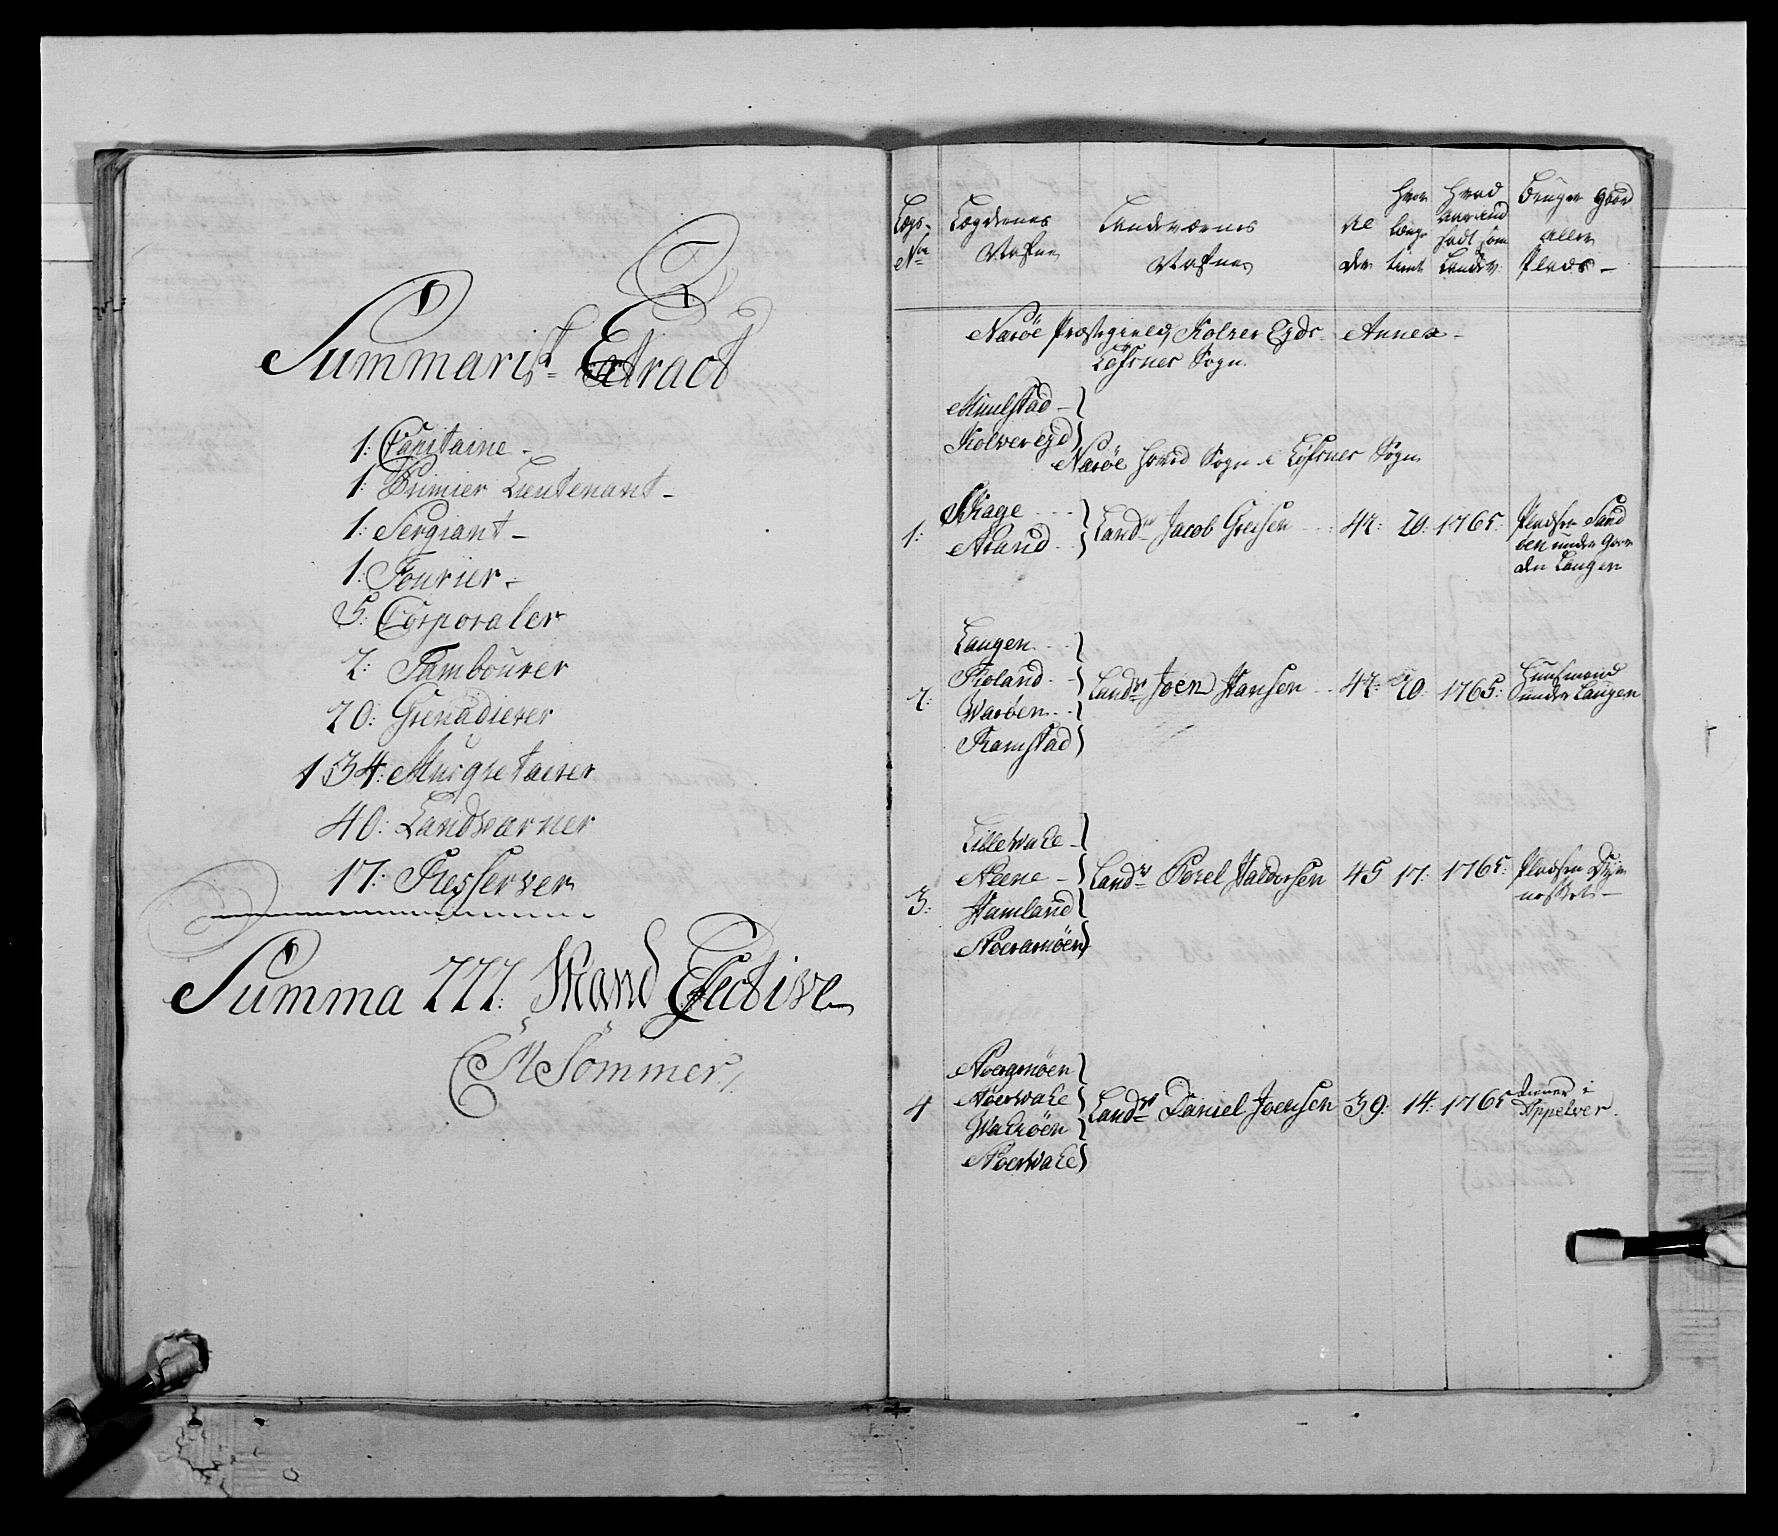 Summarisk Extract
1: Capitaine -
1: Primier Lieutenant -
1: Sergiant -
1: Fourier -
5: Corporaler
2: Tambourer
20: Grenadierer
134: Musqietairer
40: Landværner
17: Resserver
Summa 222: Mand Efective
CM Sommer
Legs No
Lægdernes Nafne
Landværnes Nafne
Alder
Hvor længe tient
Hvad aar ind sadt som Landv:
Bruger Gaard aller Plads -
Narøe Præstegield, Kolver Eyds Annex -
Løfsnes Sogn.
Muulstad -
Kolvereyd
Narøe hoved Sogn i Løfsnes Sogn
1: Skage
Aland
Land Jacob Greisen 42: 20: 1765: Pladsen Sand
under Gaar
den Laugen
2: Laugen
Fioland
Warøen
Ramstad
Landv Joen Hansen 42: 20: 1765: Huusmand
under Laugen
3: Lillewale -
Neene -
Hamland
Noeramøen
Landv Porel Haldorsen 45 17: 1765: Pladsen
4 Noeramøen
Nøerwale
Walrøen
Noerwale
Landv Daniel Joensen 39: 14: 1765 tiener i
Appelver